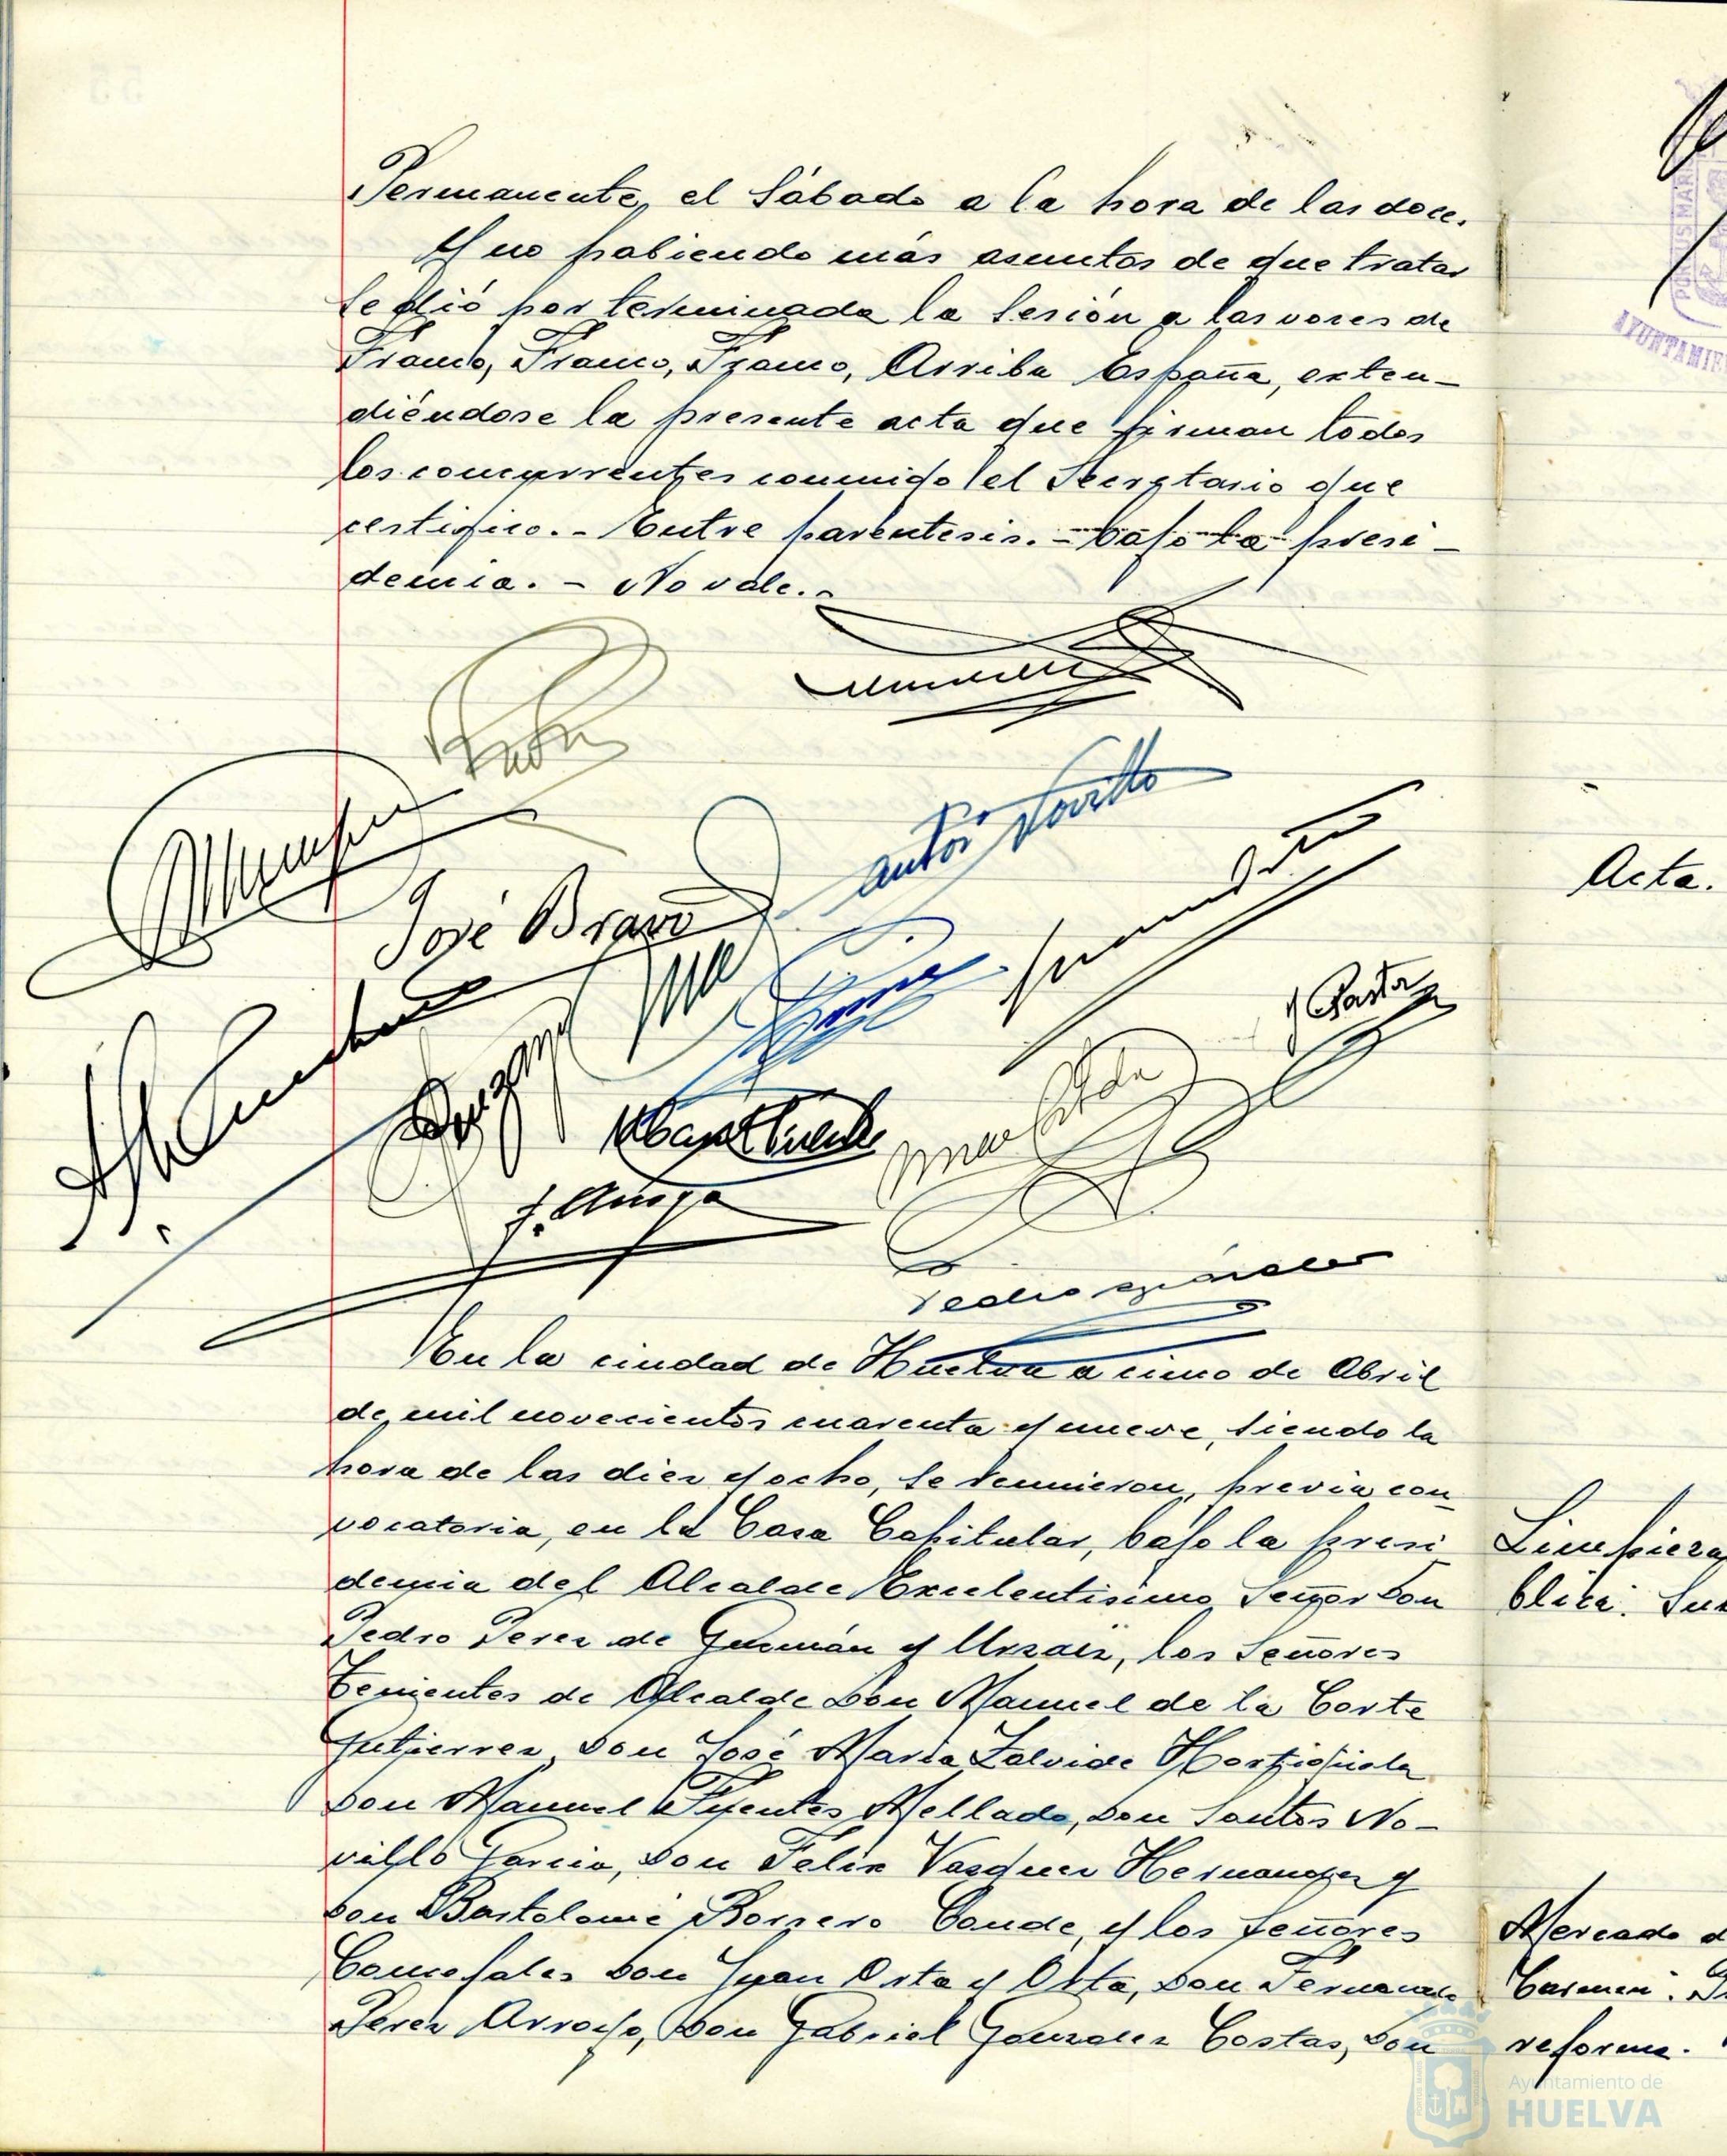 Permanente, el Sábado a la hora de las doce.
Y no habiendo más asuntos de que tratar
se dió por terminada la Sesión a las voces de
Franco, Franco, Franco, Arriba España, exten-
diéndose la presente acta que firman todos
los concurrentes conmigo el Secretario que
certifico.- Entre parentesis.- bajo la presi-
dencia.- No vale.-
José Bravo
J. Pastor
En la ciudad de Huelva a cinco de Abril
de mil novecientos cuarenta y nueve, siendo la
hora de las diez y ocho, se reunieron, previa con-
vocatoria, en la Casa Capitular, bajo la presi-
dencia del Alcalde Excelentísimo Señor Don
Pedro Perez de Guzmán y Urzaiz, los Señores
Tenientes de Alcalde Don Manuel de la Corte
Gutierrez, Don José María Zalvide
Don Manuel Fuentes Mellado, Don Santos No-
villo Garcia, Don Felix Vazquez Hernandez y
Don Bartolomé Borrero Conde, y los Señores
Concejales Don Juan Orta y Orta, Don Fernando
Perez Arroyo, Don Gabriel Gonzalez Costas, Don
Acta.
Limpieza
blica. Su
Mercado d
Carmen.
reforma.
AYUNTAMIE
Ayuntamiento de
HUELVA